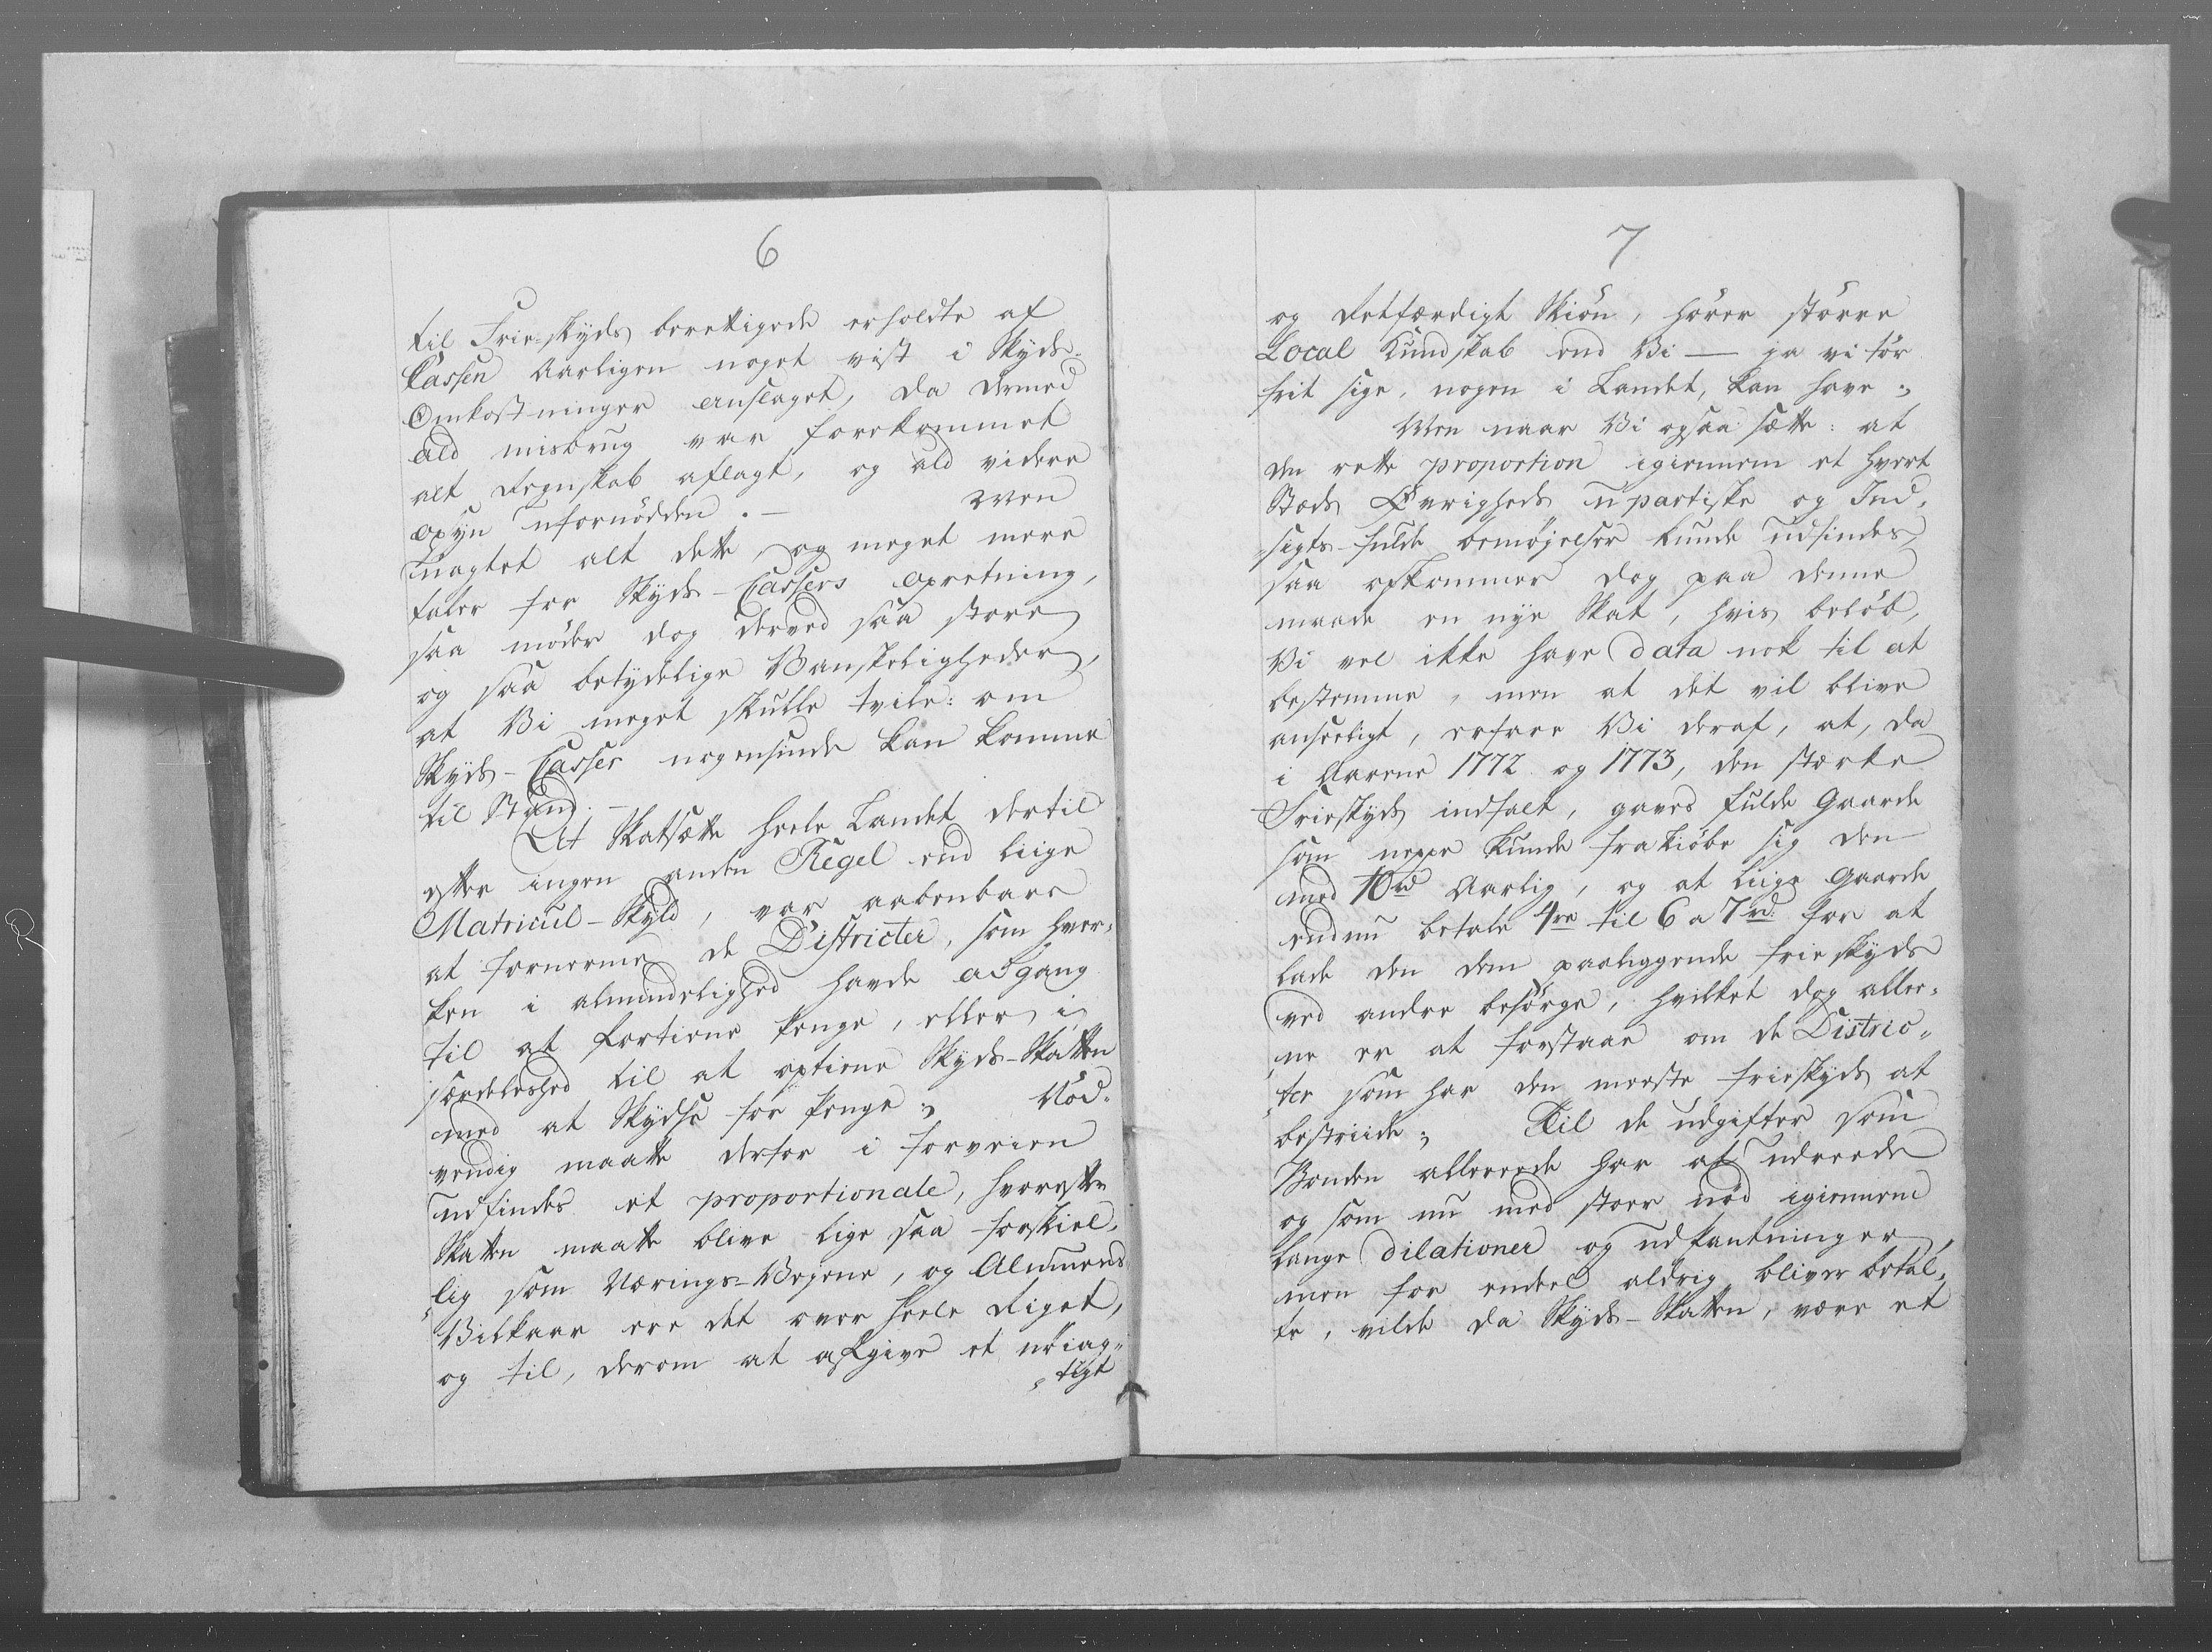 6
til Frie-skyds berettigede erholdte af
Cassen Aarligen noget vist i Skyds-
Omkostninger anslaget, da dermed
ald misbrug var forekommet
alt Regnskab aflagt, og ald videre
opsyn ufornödden. — Men
uagtet alt dette, og meget mere
taler for Skyds-Cassers opretning,
saa möder dog derved saa store
og saa betydelige Vanskeligheder,
at Vi meget skulle tvile: om
Skyds-Casser nogensinde kan komme
til Stand. —
At Skatsætte heele Landet dertil
efter ingen anden Regel end liige
Matricul-Skyld, var aabenbare
at fornerme de Districter, som hver-
ken i almindelighed havde adgang
til at fortiene penge, eller i
særdeleshed til at optiene Skyds-Skatten
med at Skydse for penge; Nöd-
vendig maatte derfor i forveien
udfindes et proportionale, hvorefter
Skatten maatte blive lige saa forskiel-
lig som Nærings-Vejene, og Almuens
Vilkaar ere det over heele Riget,
og til, derom at afgive et nöiag-
tigt
7
og Retfærdigt Skiön, hörer större
Local Kundskab end Vi — ja vi tör
frit sige, nogen i Landet, kan have;
Men naar Vi ogsaa sætte: at
den rette proportion igiennem et hvert
Steds Øvrigheds upartiske og Ind-
sigts-fulde bemöjelser kunde udfindes,
saa opkommer dog paa denne
maade en nye Skat, hvis belöb,
Vi vel ikke have data nok til at
bestemme, men at det vil blive
anseeligt, erfare Vi deraf, at, da
i Aarene 1772 og 1773, den stærke
Frieskyds indfalt, gaves fulde Gaarde
som neppe kunde frakiöbe sig den
med 10 rd Aarlig, og at liige Gaarde
endnu betale 4re til 6 a 7 rd. for at
lade den dem paaliggende frieskyds
ved andre besörge, hvilket dog aller-
ne er at forstaae om de Distric-
ter som har den meeste frieskyds at
bestriide; Til de udgifter som
Bonden allereede har at udreede
og som nu med stor nöd igiennem
lange dilationer og udpantninger,
men for endeel aldrig bliver betal-
te, vilde da Skyds-Skatten, være et